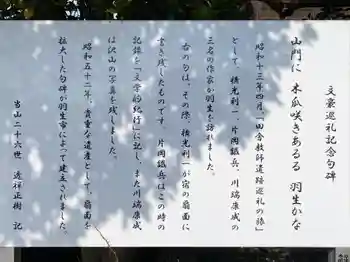 文豪巡礼記念句碑
山門に 木瓜咲きあるる 羽生かな
昭和十三年四月、「田舎教師遺跡巡礼の旅」
として、横光利一、片岡鐵兵、川端康成の
三名の作家が羽生を訪れました。
右の句は、その際、横光利一が宿の扇面に
書き残したものです。片岡鐵兵はこの時の
記録を「文学的紀行」に記し、また川端康成
は沢山の写真を残しました。
昭和五十二年、貴重な遺産として、扇面を
拡大した句碑が羽生市によって建立されました。
当山二十六世 透祥正樹 記